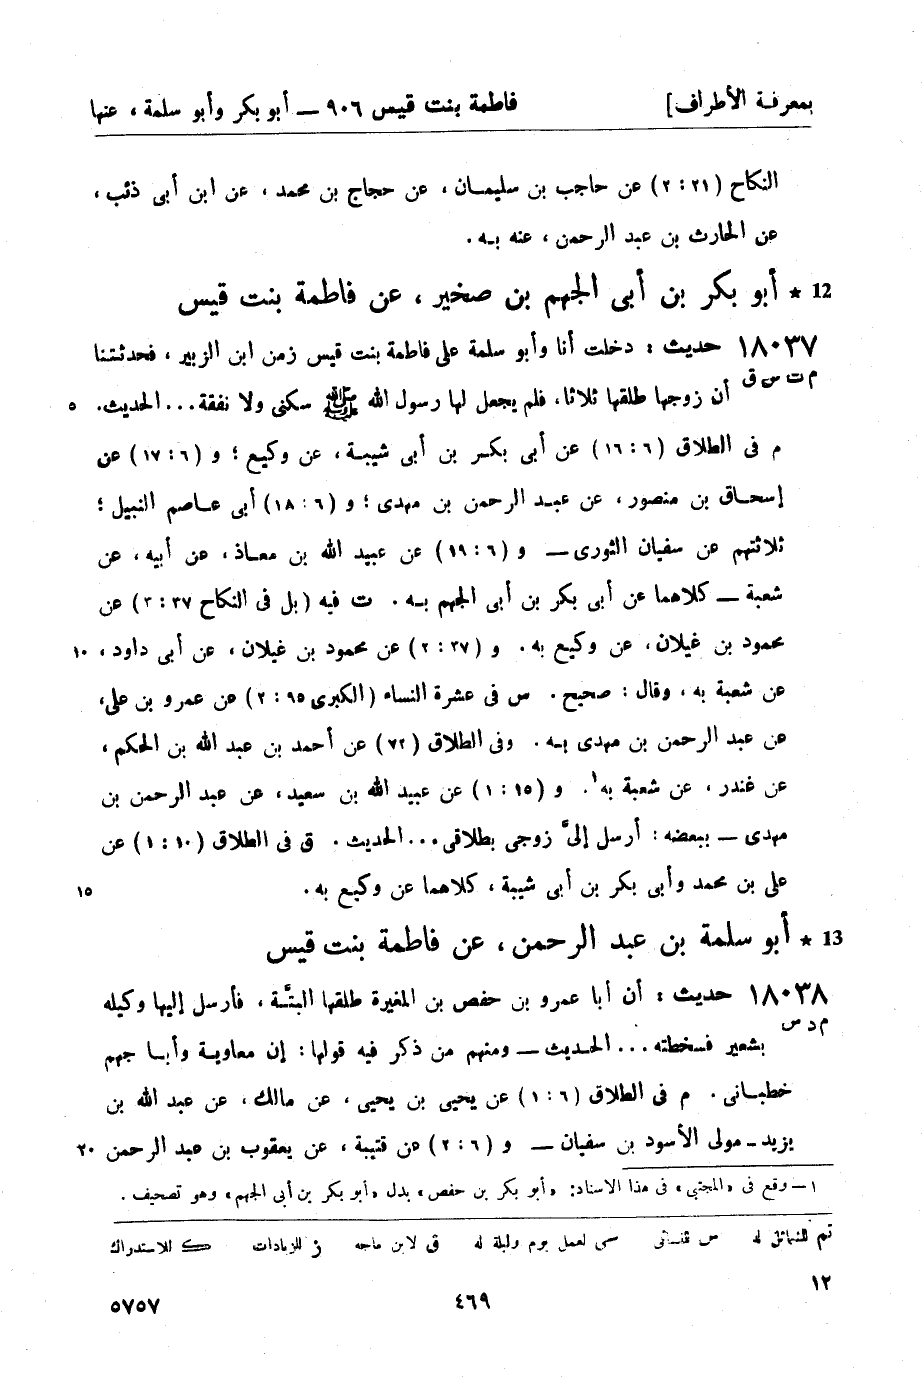 بمعرفة الأطراف] فاطمة بنت قيس ٩٠٦ — أبو بكر وأبو سلمة ، عنها
النكاح (٢١ : ٢) عن حاجب بن سليمان ، عن حجاج بن محمد ، عن ابن أبى ذئب ،
عن الحارث بن عبد الرحمن ، عنه به .
12 * أبو بكر بن أبى الجهم بن صخير ، عن فاطمة بنت قيس
١٨٠٣٧ حديث : دخلت أنا وأبو سلمة على فاطمة بنت قيس زمن ابن الزبير ، فحدثتنا
م ت س ق أن زوجها طلقها ثلاثا ، فلم يجعل لها رسول الله ﷺ سكنى ولا نفقة ... الحديث . ٥
م فى الطلاق (٦ : ١٦) عن أبى بكر بن أبى شيبة ، عن وكيع ؛ و (٦ : ١٧) عن
إسحاق بن منصور ، عن عبد الرحمن بن مهدى ؛ و (٦ : ١٨) أبى عاصم النبيل ؛
ثلاثتهم عن سفيان الثورى — و (٦ : ١٩) عن عبيد الله بن معاذ ، عن أبيه ، عن
شعبة — كلاهما عن أبى بكر بن أبى الجهم به . ت فيه (بل فى النكاح ٣٧ : ٣) عن
محمود بن غيلان ، عن وكيع به . و (٣٧ : ٢) عن محمود بن غيلان ، عن أبى داود ، ١٠
عن شعبة به ، وقال : صحيح . س فى عشرة النساء (الكبرى ٩٥ : ٢) عن عمرو بن على ،
عن عبد الرحمن بن مهدى به . وفى الطلاق (٧٢) عن أحمد بن عبد الله بن الحكم ،
عن غندر ، عن شعبة به١ . و (١٥ : ١) عن عبيد الله بن سعيد ، عن عبد الرحمن بن
مهدى — ببعضه : أرسل إلىَّ زوجى بطلاقى ... الحديث . ق فى الطلاق (١٠ : ١) عن
على بن محمد وأبى بكر بن أبى شيبة ، كلاهما عن وكيع به . ١٥
13 * أبو سلمة بن عبد الرحمن ، عن فاطمة بنت قيس
١٨٠٣٨ حديث : أن أبا عمرو بن حفص بن المغيرة طلقها البتَّة ، فأرسل إليها وكيله
م د س بشعير فسخطته ... الحديث — ومنهم من ذكر فيه قولها : إن معاوية وأبا جهم
خطبانى . م فى الطلاق (٦ : ١) عن يحيى بن يحيى ، عن مالك ، عن عبد الله بن
يزيد - مولى الأسود بن سفيان — و (٦ : ٢) عن قتيبة ، عن يعقوب بن عبد الرحمن ٢٠
١ — وقع فى «المجتبى» فى هذا الاسناد : «أبو بكر بن حفص» بدل «أبو بكر بن أبى الجهم» وهو تصحيف .
تم للشمائل له س للنسائى سى لعمل يوم وليلة له ق لابن ماجه ز للزيادات ك للاستدراك
١٢
٤٦٩
٥٧٥٧